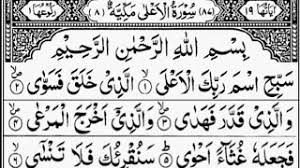 اٰیَاتُهَا ١٩ (٨٧) سُوْرَةُ الْاَعْلٰى مَكِّیَّةٌ (٨) رُكُوْعُهَا ١
بِسْمِ اللهِ الرَّحْمٰنِ الرَّحِیْمِ
سَبِّحِ اسْمَ رَبِّكَ الْاَعْلَى ۙ﴿١﴾ الَّذِیْ خَلَقَ فَسَوّٰى ۪ۙ﴿٢﴾
وَ الَّذِیْ قَدَّرَ فَهَدٰى ۪ۙ﴿٣﴾ وَ الَّذِیْۤ اَخْرَجَ الْمَرْعٰى ۪ۙ﴿٤﴾
فَجَعَلَهٗ غُثَآءً اَحْوٰى ؕ﴿٥﴾ سَنُقْرِئُكَ فَلَا تَنْسٰۤى ۙ﴿٦﴾